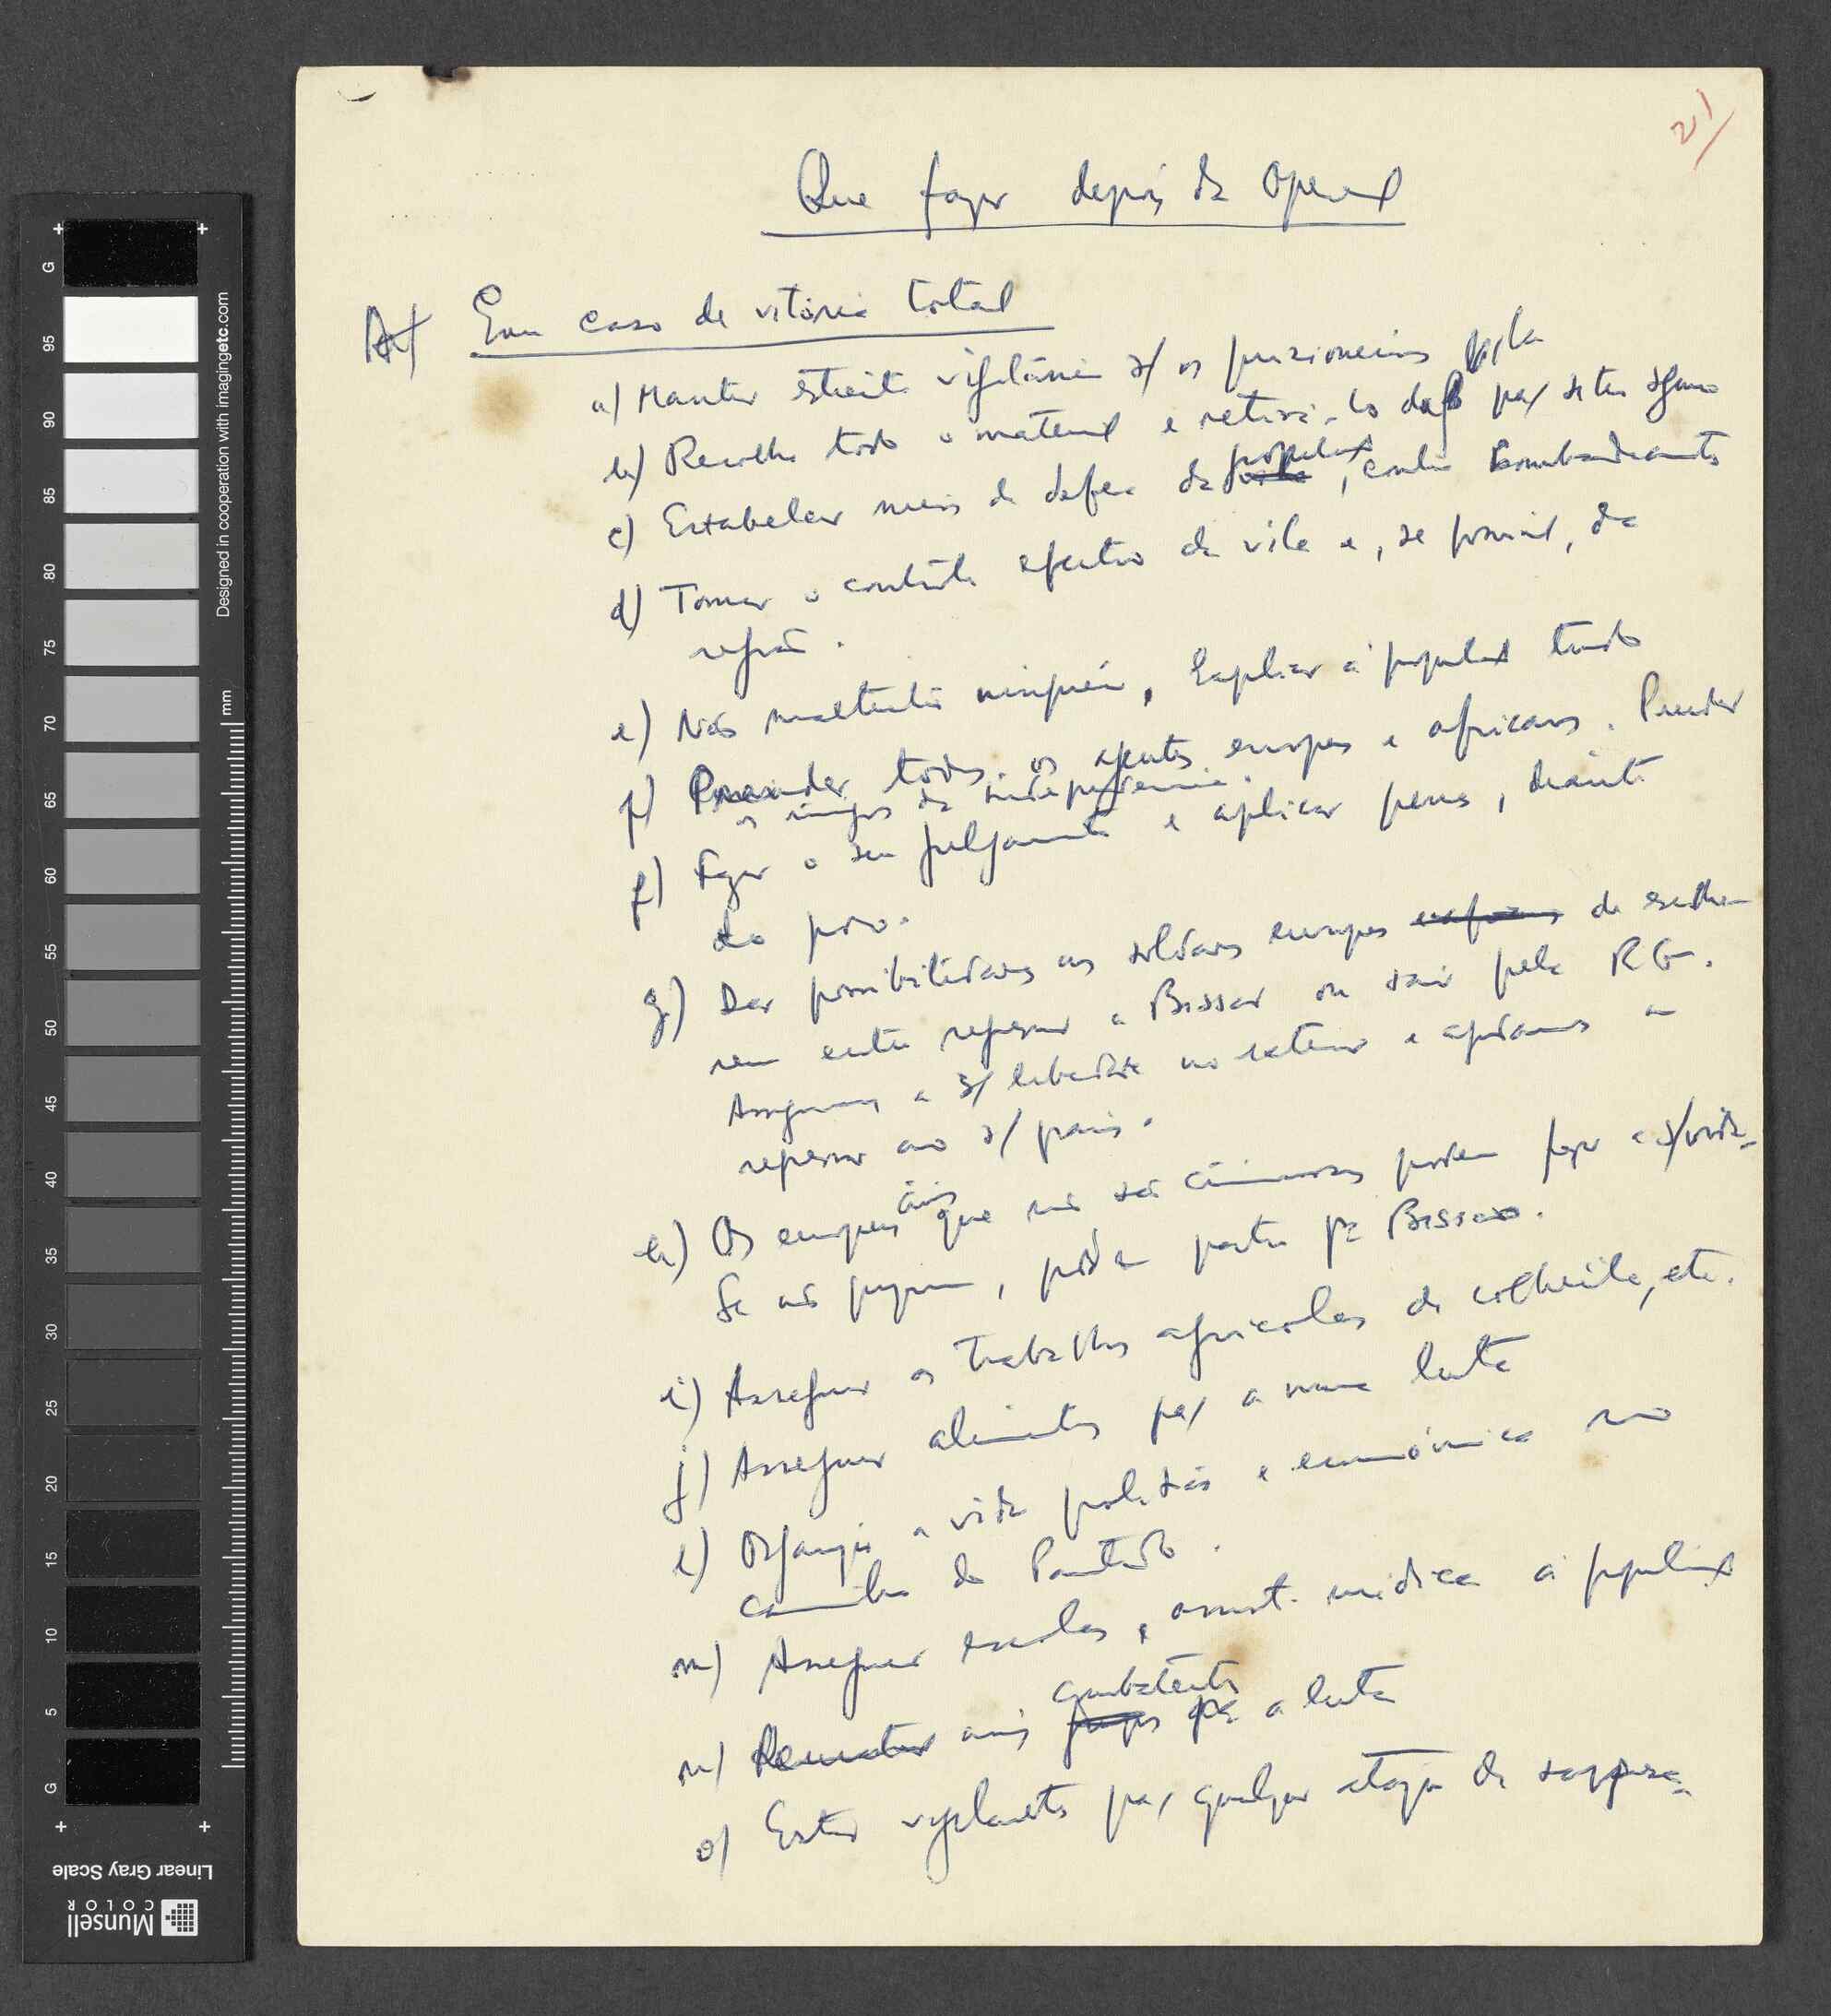 21
Que fazer depois da Operaç
A) Em caso de vitória total
a) Manter estreita vigilância s/ os prisioneiros
vila
b) Recolher todo o material e retirá-lo da para sítio seguro
população
c) Estabelecer meios de defesa da vila, contra bombardeamentos
d) Tomar o contrôle efectivo da vila e, se possível, da
região.
e) Não maltratar ninguém. Explicar à população tudo
f) Prender todos os agentes europeus e africanos. Prender
os inimigos da independência.
f) Fazer o seu julgamento e aplicar penas, diante
do povo.
g) Dar possibilidades aos soldados europeus de escolhe-
rem entre regressar a Bissau ou sair pela RG.
Asseguramos a s/ liberdade no exterior e ajudamos a
regressar ao s/ país.
civis
h) Os europeus que não são criminosos podem fazer a s/ vida.
Se não quiserem, podem partir pa Bissau.
i) Assegurar os trabalhos agrícolas de colheita, etc.
j) Assegurar alimentos para a nossa luta
l) Organizar a vida política e económica no
caminho do Partido.
m) Assegurar escolas, e assist. médica à população
combatentes
n) Recrutar mais grupos pa a luta
o) Estar vigilantes para qualquer ataque de surpresa.
Designed in cooperation with imagingetc.com
mm
G 95 90 85 80 75 70 65 60 55 50 45 40 35 30 25 20 15 10 5 G
Linear Gray Scale
Munsell
COLOR